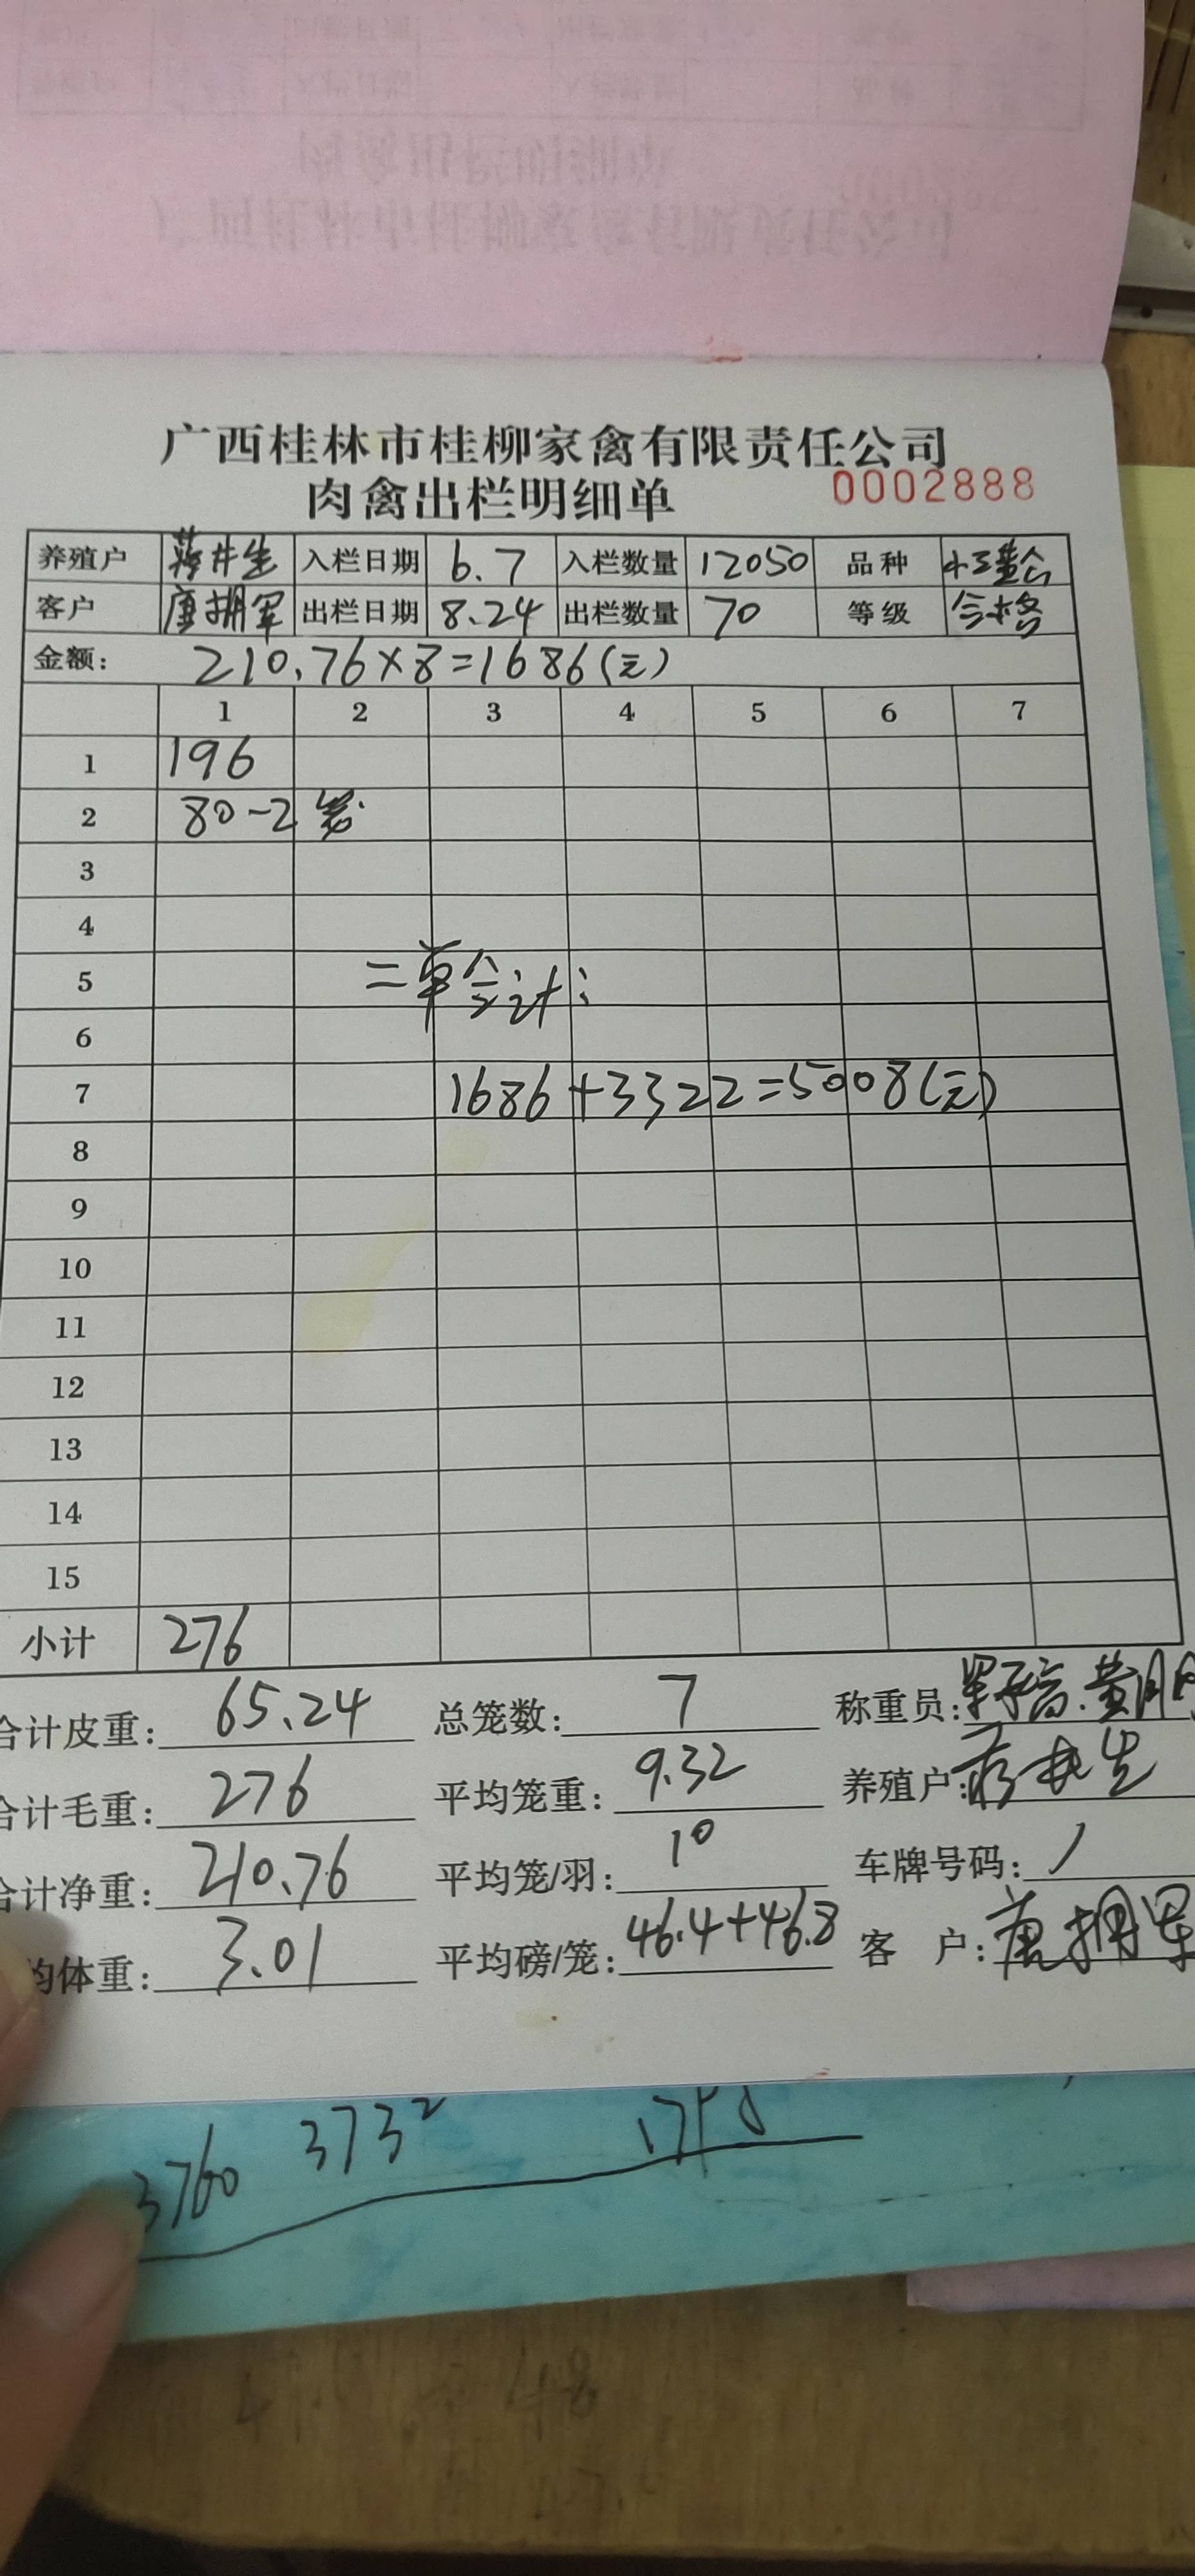 广西桂林市桂柳家禽有限责任公司
肉禽出栏明细单 0002888
养殖户 蒋井生 入栏日期 6.7 入栏数量 12050 品种
客户 唐拥军 出栏日期 8.24 出栏数量 70 等级 合格
金额: 210.76×8=1686(元)
1 2 3 4 5 6 7
1 196
2 80-2笼
3
4
5 二单合计:
6
7 1686+3322=5008(元)
8
9
10
11
12
13
14
15
小计 276
合计皮重: 65.24 总笼数: 7 称重员:
合计毛重: 276 平均笼重: 9.32 养殖户: 蒋井生
合计净重: 210.76 平均笼/羽: 10 车牌号码: /
均体重: 3.01 平均磅/笼: 46.4+46.8 客 户: 唐拥军
3760 3732
48